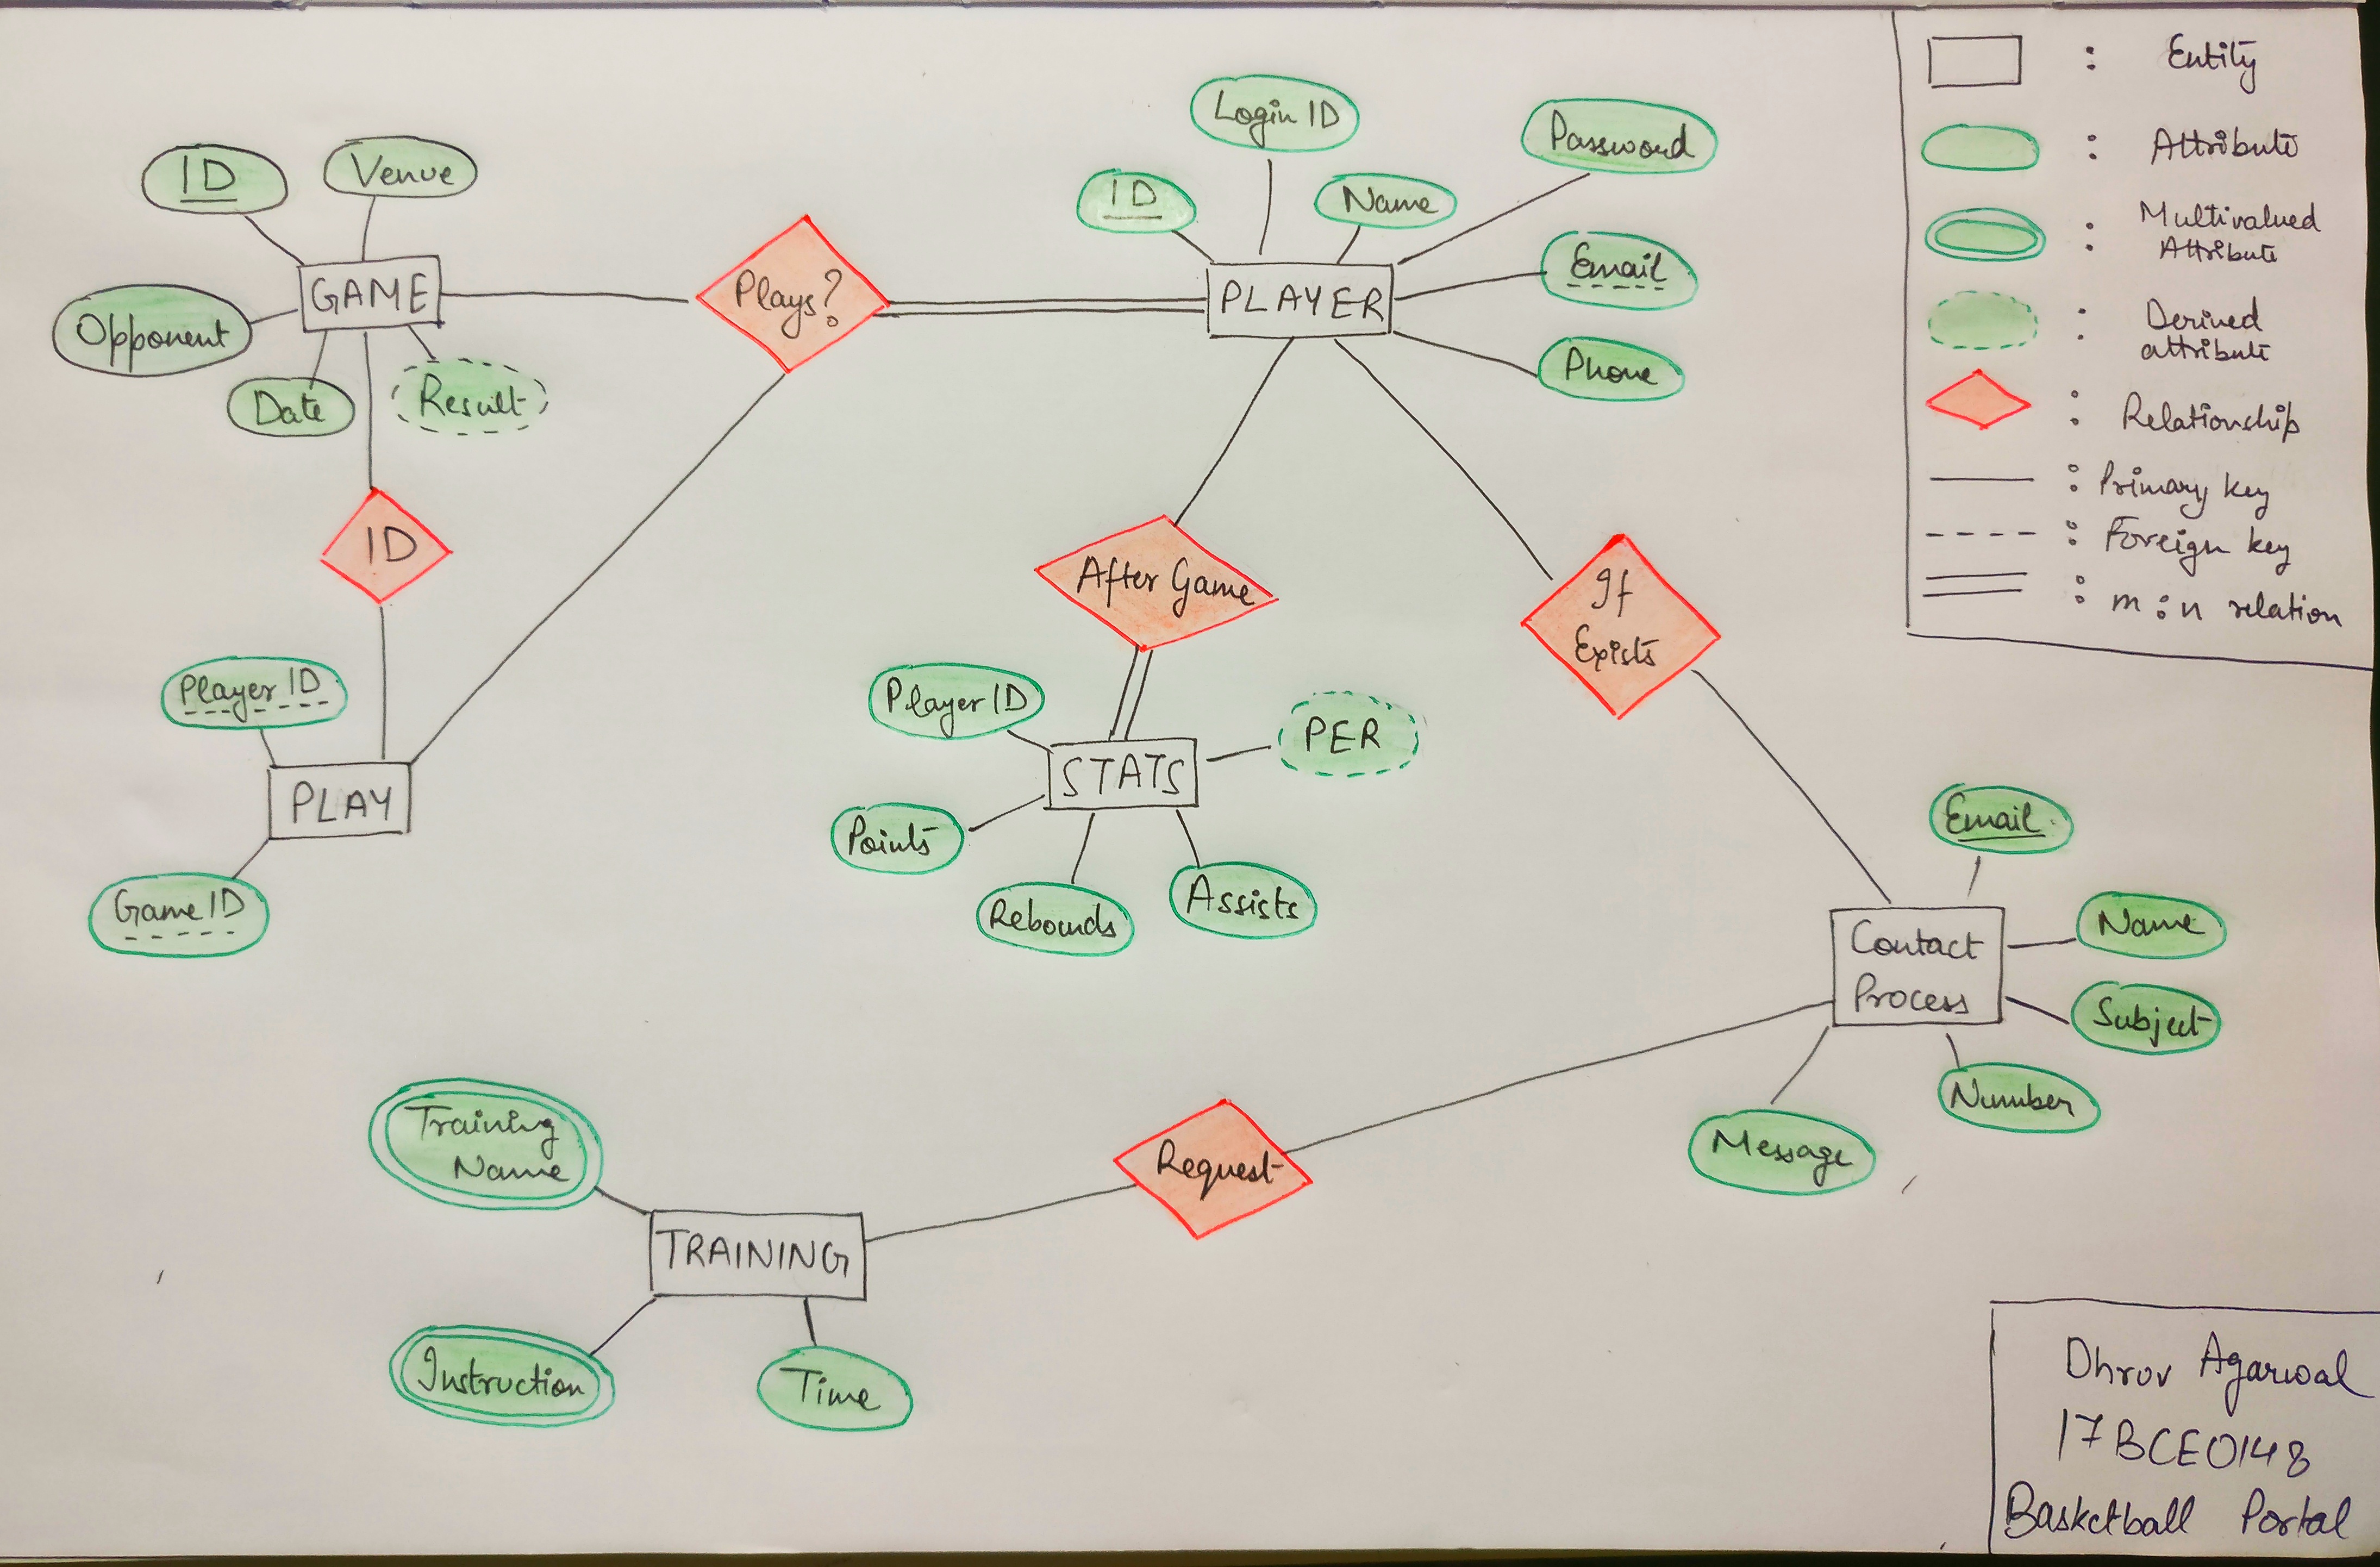 ID
Venue
GAME
Opponent
Date
Result
Plays?
Login ID
Password
ID
Name
PLAYER
Email
Phone
ID
Player ID
PLAY
Game ID
After Game
Player ID
PER
STATS
Points
Rebounds
Assists
If
Exists
Email
Contact
Process
Name
Subject
Number
Message
Request
Training
Name
TRAINING
Instruction
Time
: Entity
: Attribute
: Multivalued
Attribute
: Derived
attribute
: Relationship
: Primary key
: Foreign key
: m:n relation
Dhruv Agarwal
17BCE0148
Basketball Portal